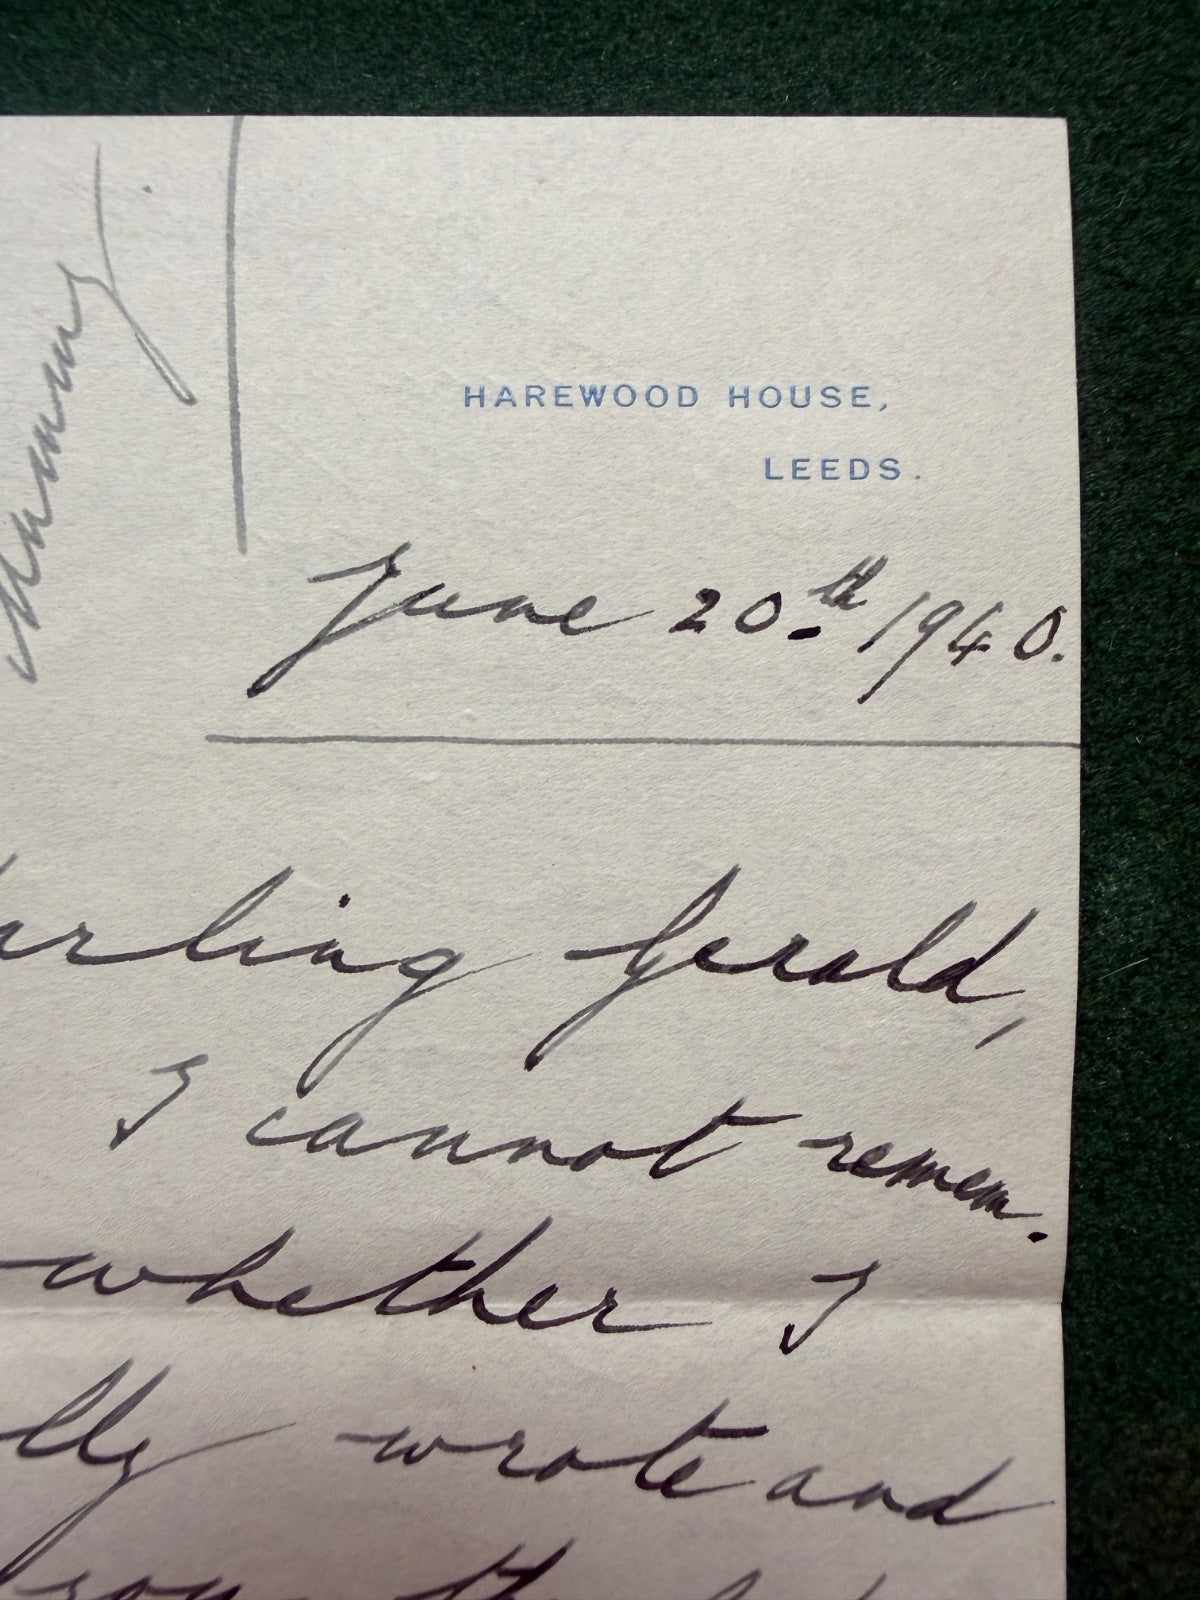 HAREWOOD HOUSE,
LEEDS.
June 20.th 1940.
arling Gerald,
I cannot remem.
whether I
lly wrote and